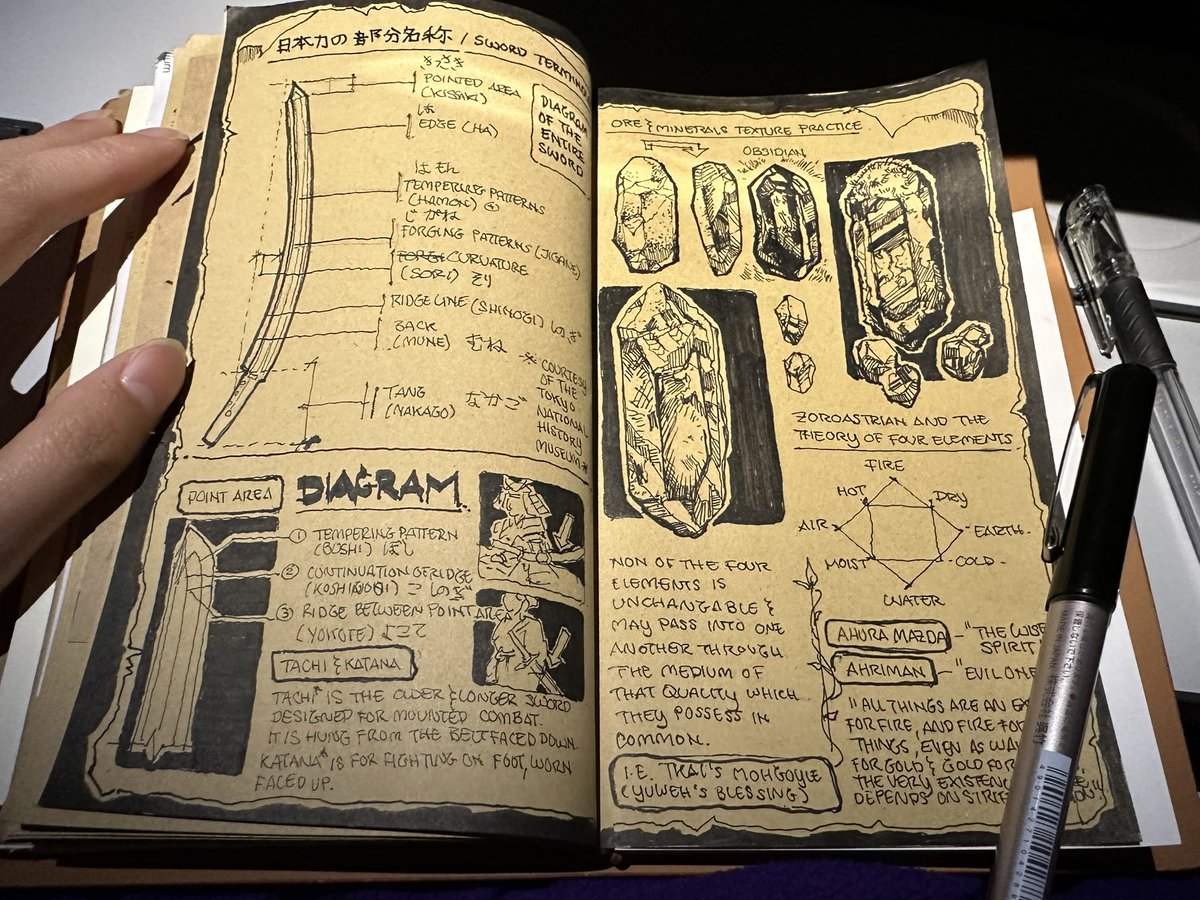 日本刀の部分名称 / SWORD TERMINO
DIAGRAM
OF THE
ENTIRE
SWORD
きっさき
POINTED AREA
(KISSAKI)
は
EDGE (HA)
はもん
TEMPERING PATTERNS
(HAMON)
じがね
FORGING PATTERNS (JIGANE)
CURVATURE
(SORI) そり
RIDGE LINE (SHINOGI) しのぎ
BACK
(MUNE) むね
TANG
(NAKAGO) なかご
* COURTESY
OF THE
TOKYO
NATIONAL
HISTORY
MUSEUM *
POINT AREA
DIAGRAM
① TEMPERING PATTERN
(BOSHI) ぼし
② CONTINUATION OF RIDGE
(KOSHINOGI) こしのぎ
③ RIDGE BETWEEN POINT AREA
(YOKOTE) よこて
TACHI & KATANA
TACHI* IS THE OLDER & LONGER SWORD
DESIGNED FOR MOUNTED COMBAT.
IT IS HUNG FROM THE BELT FACED DOWN.
KATANA* IS FOR FIGHTING ON FOOT, WORN
FACED UP.
ORE & MINERALS TEXTURE PRACTICE.
OBSIDIAN
ZOROASTRIAN AND THE
THEORY OF FOUR ELEMENTS
FIRE
HOT
DRY
AIR
EARTH
MOIST
COLD
WATER
NON OF THE FOUR
ELEMENTS IS
UNCHANGABLE &
MAY PASS INTO ONE
ANOTHER THROUGH
THE MEDIUM OF
THAT QUALITY WHICH
THEY POSSESS IN
COMMON.
I.E. TKAI'S MOHGOYLE
(YUWEH'S BLESSING)
AHURA MAZDA - "THE WISE
SPIRIT"
AHRIMAN - "EVIL ONE
"ALL THINGS ARE AN EX
FOR FIRE, AND FIRE FOR
THINGS, EVEN AS WA
FOR GOLD & GOLD FOR
THE VERY EXISTENC
DEPENDS ON STRIF
MADE IN JAPAN